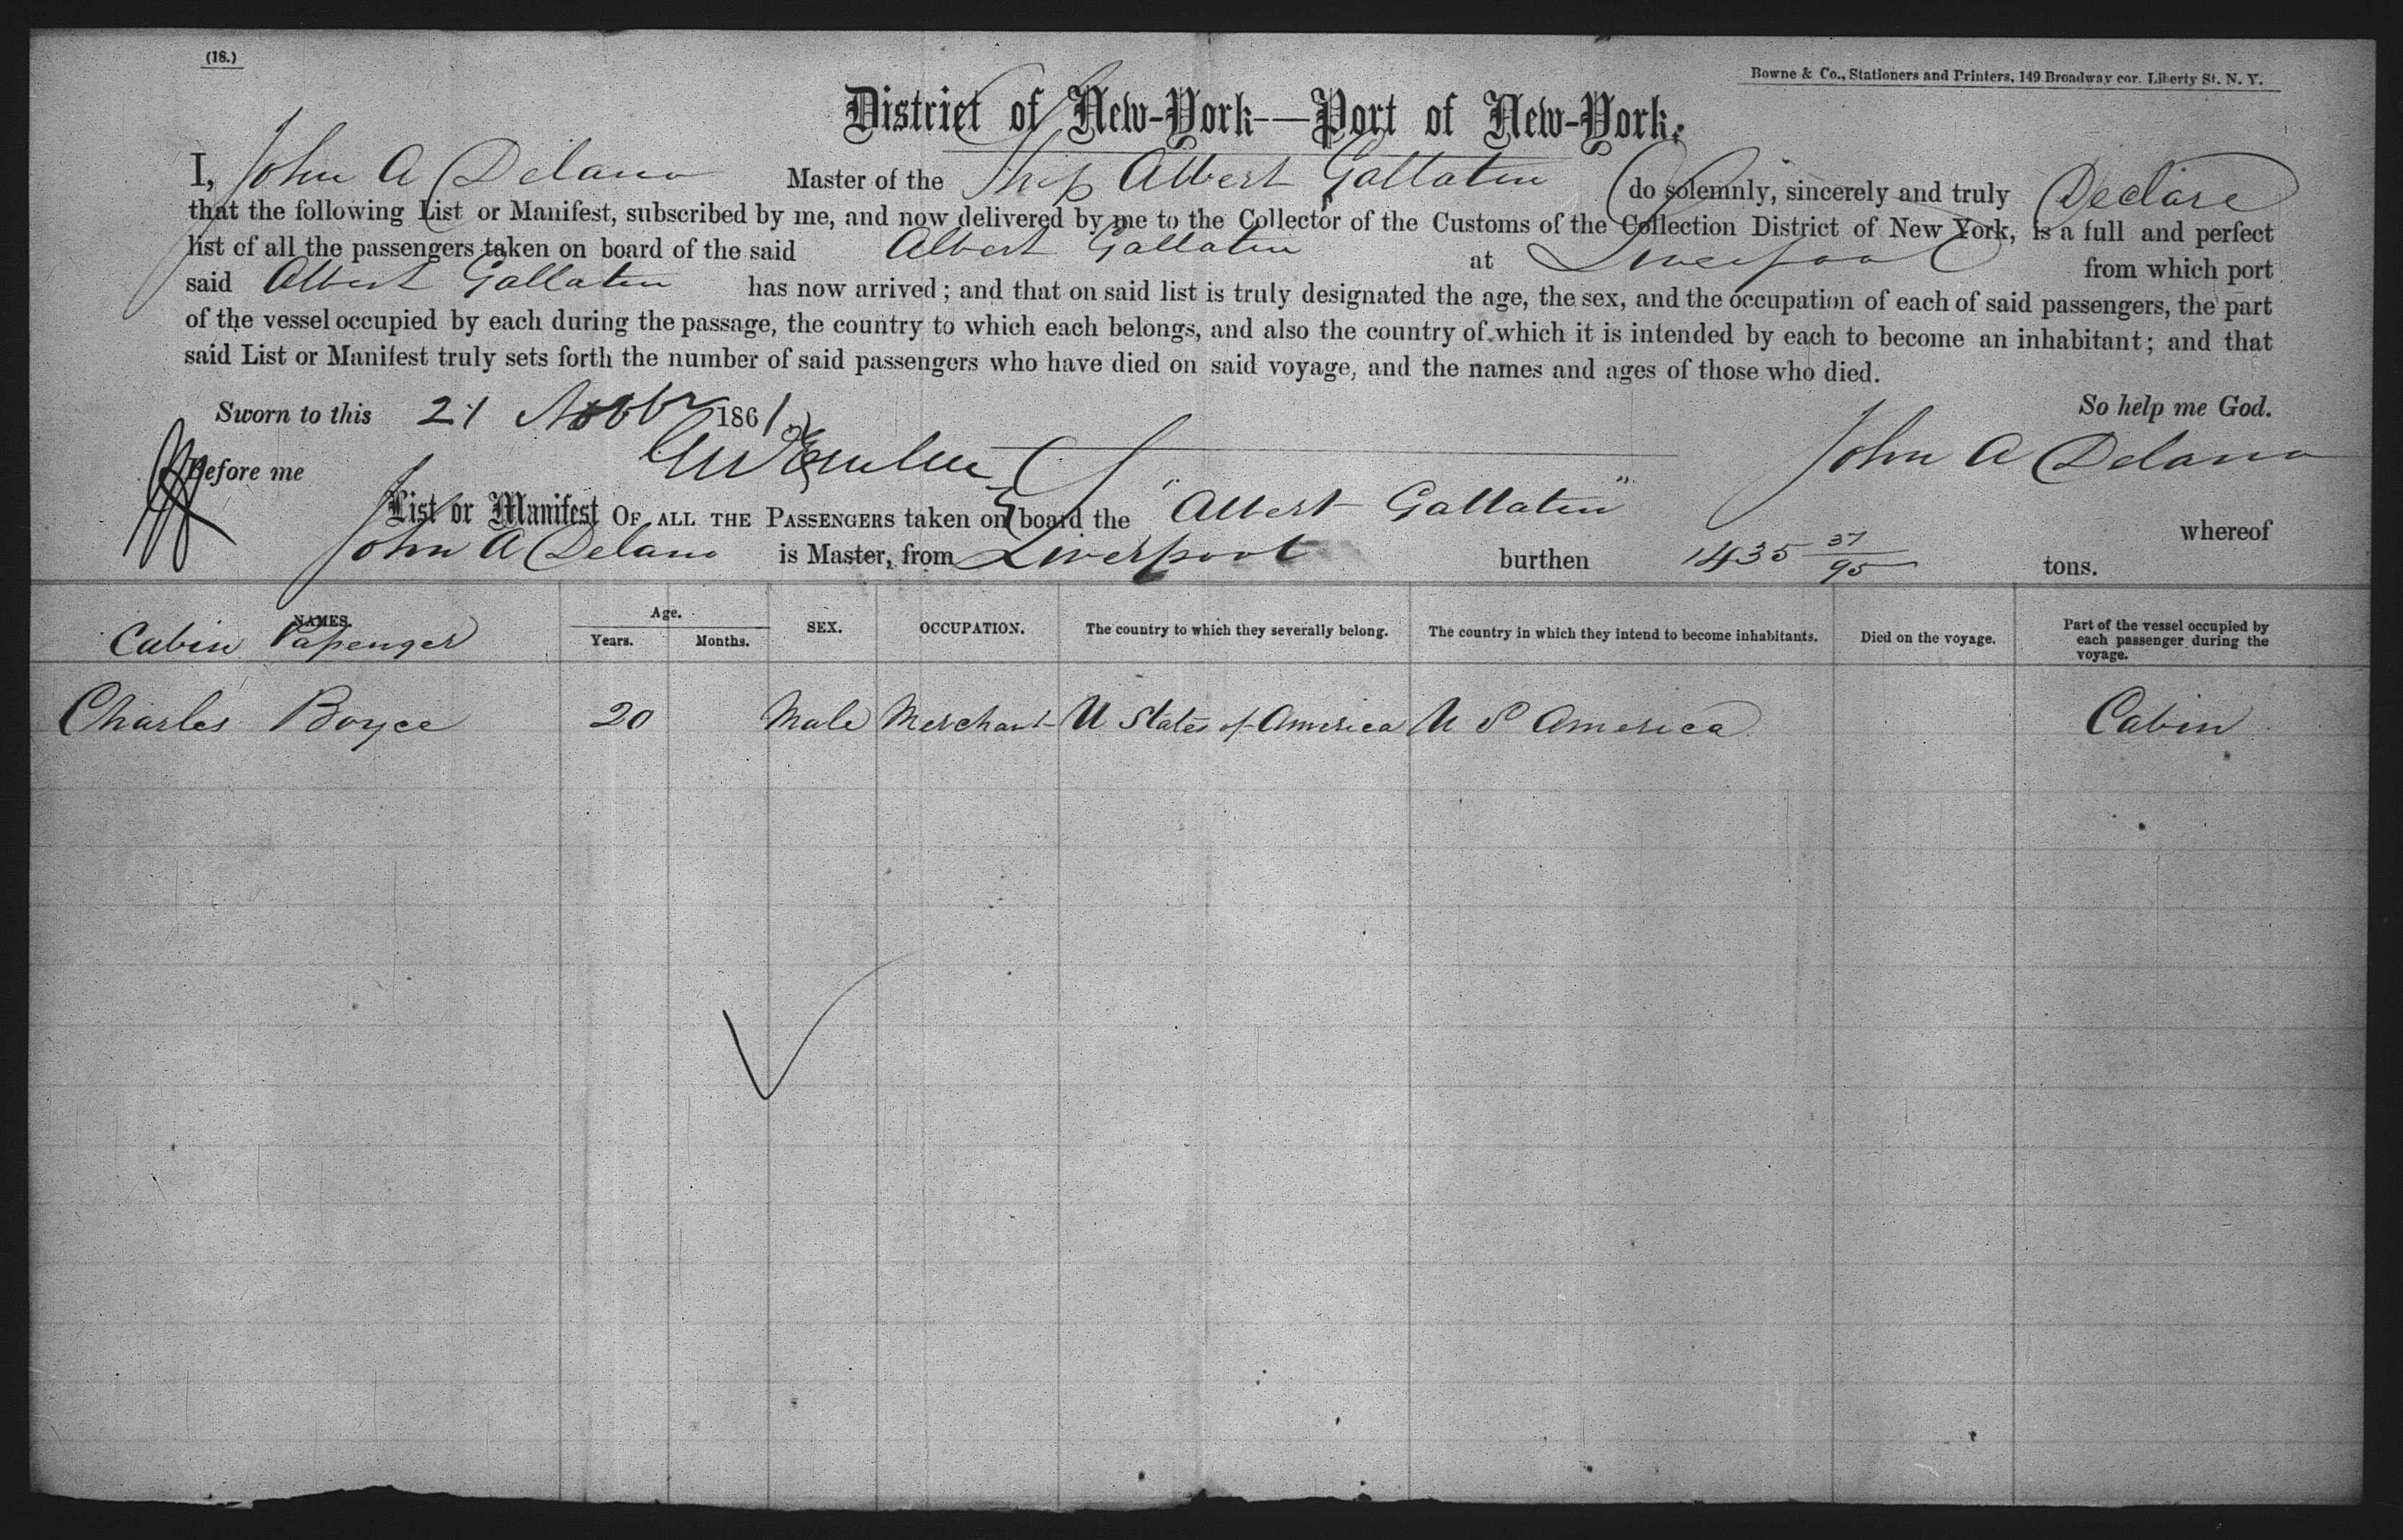 (18.)
Bowne & Co., Stationers and Printers, 149 Broadway cor. Liberty St. N. Y.
District of New-York—Port of New-York.
I, John A Delano Master of the Ship Albert Gallatin do solemnly, sincerely and truly Declare
that the following List or Manifest, subscribed by me, and now delivered by me to the Collector of the Customs of the Collection District of New York, is a full and perfect
list of all the passengers taken on board of the said Albert Gallatin at Liverpool from which port
said Albert Gallatin has now arrived; and that on said list is truly designated the age, the sex, and the occupation of each of said passengers, the part
of the vessel occupied by each during the passage, the country to which each belongs, and also the country of which it is intended by each to become an inhabitant; and that
said List or Manifest truly sets forth the number of said passengers who have died on said voyage, and the names and ages of those who died.
Sworn to this 21 1861 So help me God.
Before me John A Delano
List or Manifest OF ALL THE PASSENGERS taken on board the "Albert Gallatin" whereof
John A Delano is Master, from Liverpool burthen 1435 37/95 tons.
NAMES. Age. Years. Months. SEX. OCCUPATION. The country to which they severally belong. The country in which they intend to become inhabitants. Died on the voyage. Part of the vessel occupied by each passenger during the voyage.
Cabin Passenger
Charles Boyce 20 Male Merchant U States of America U S America Cabin